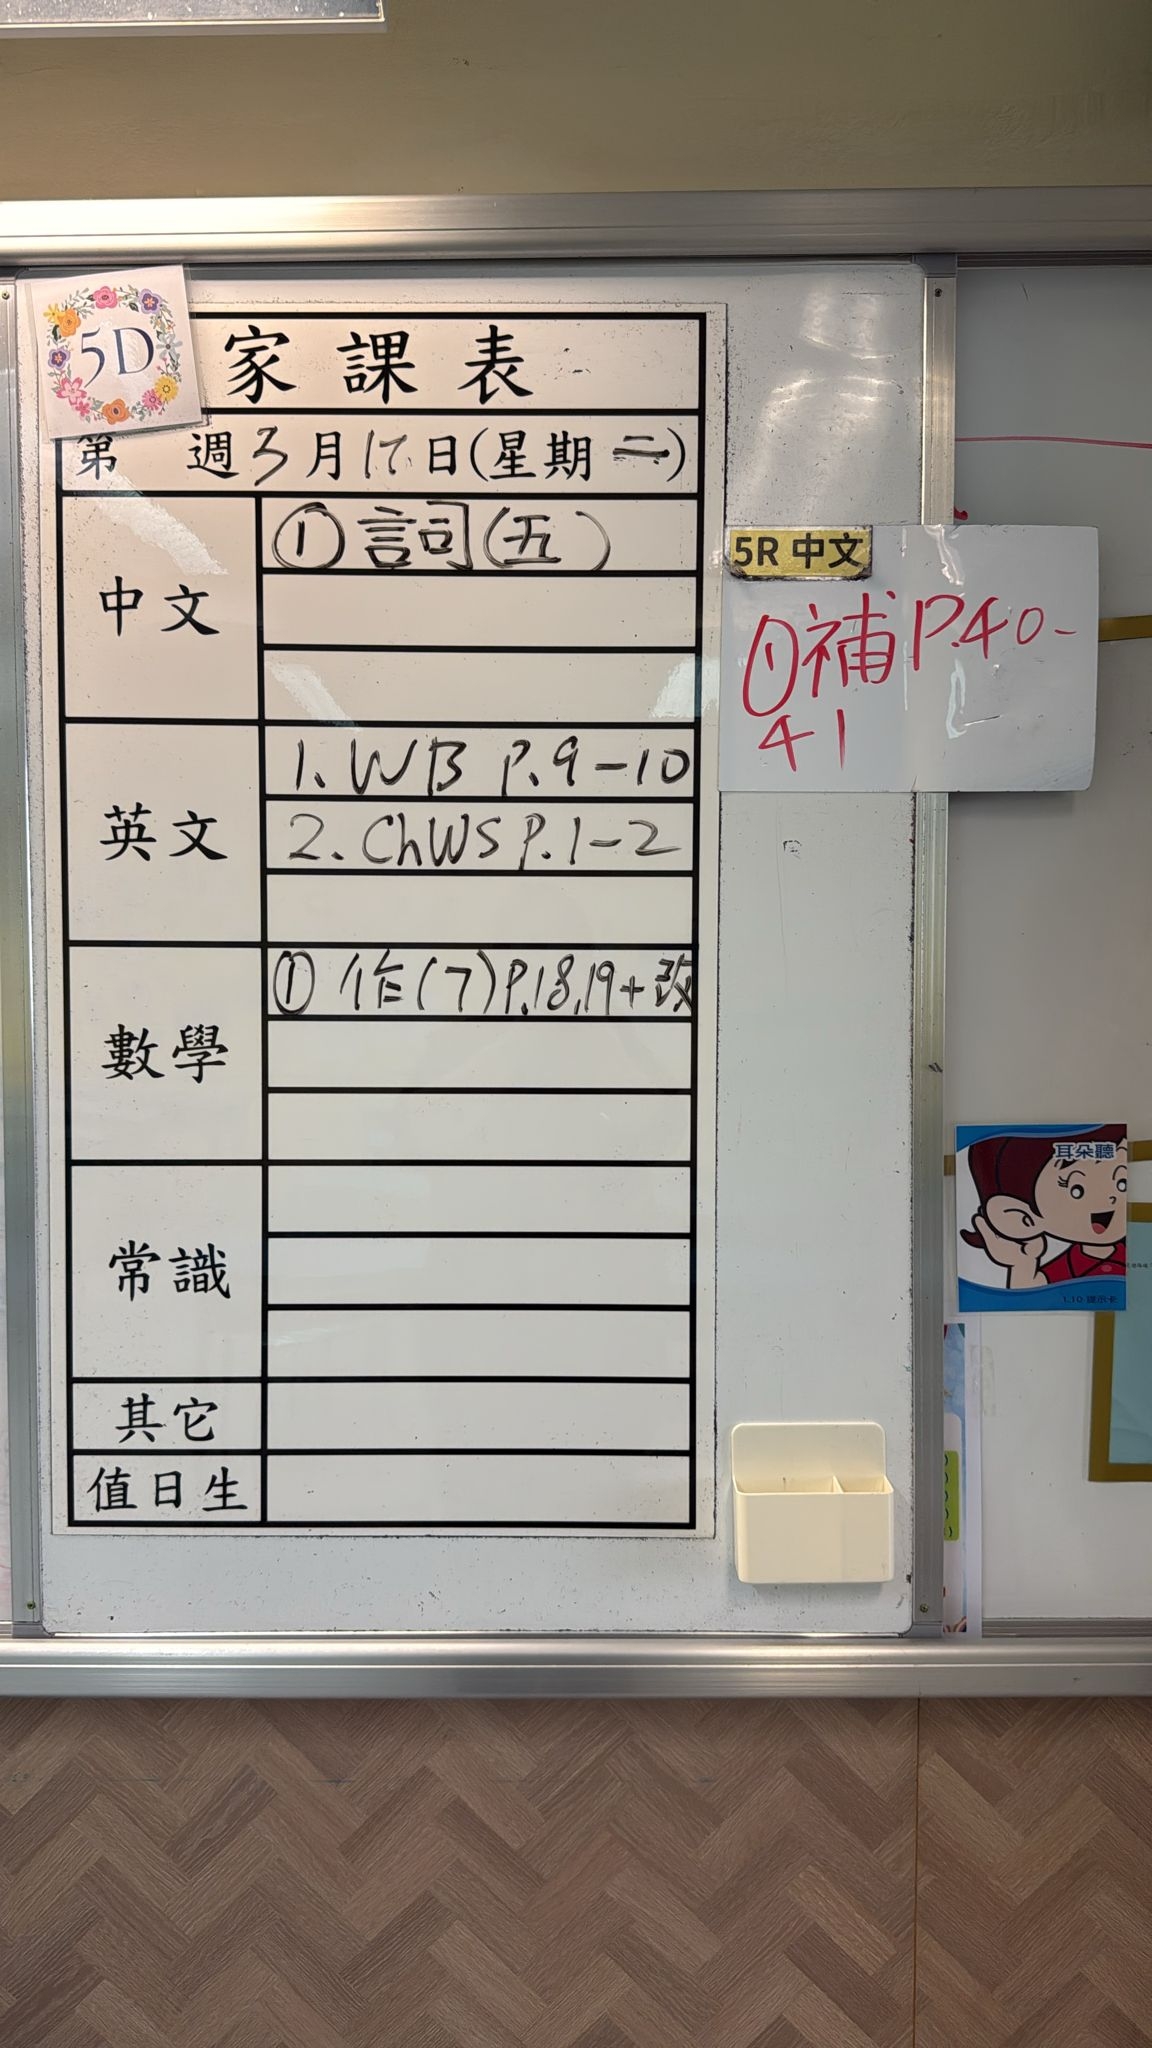 5D
家課表
第 週3月17日(星期二)
中文
① 詞(五)
英文
1. WB P.9-10
2. ChWS P.1-2
數學
① 作(7)P.18,19+改
常識
其它
值日生
5R 中文
①補P.40-
41
耳朵聽
1.10 提示卡